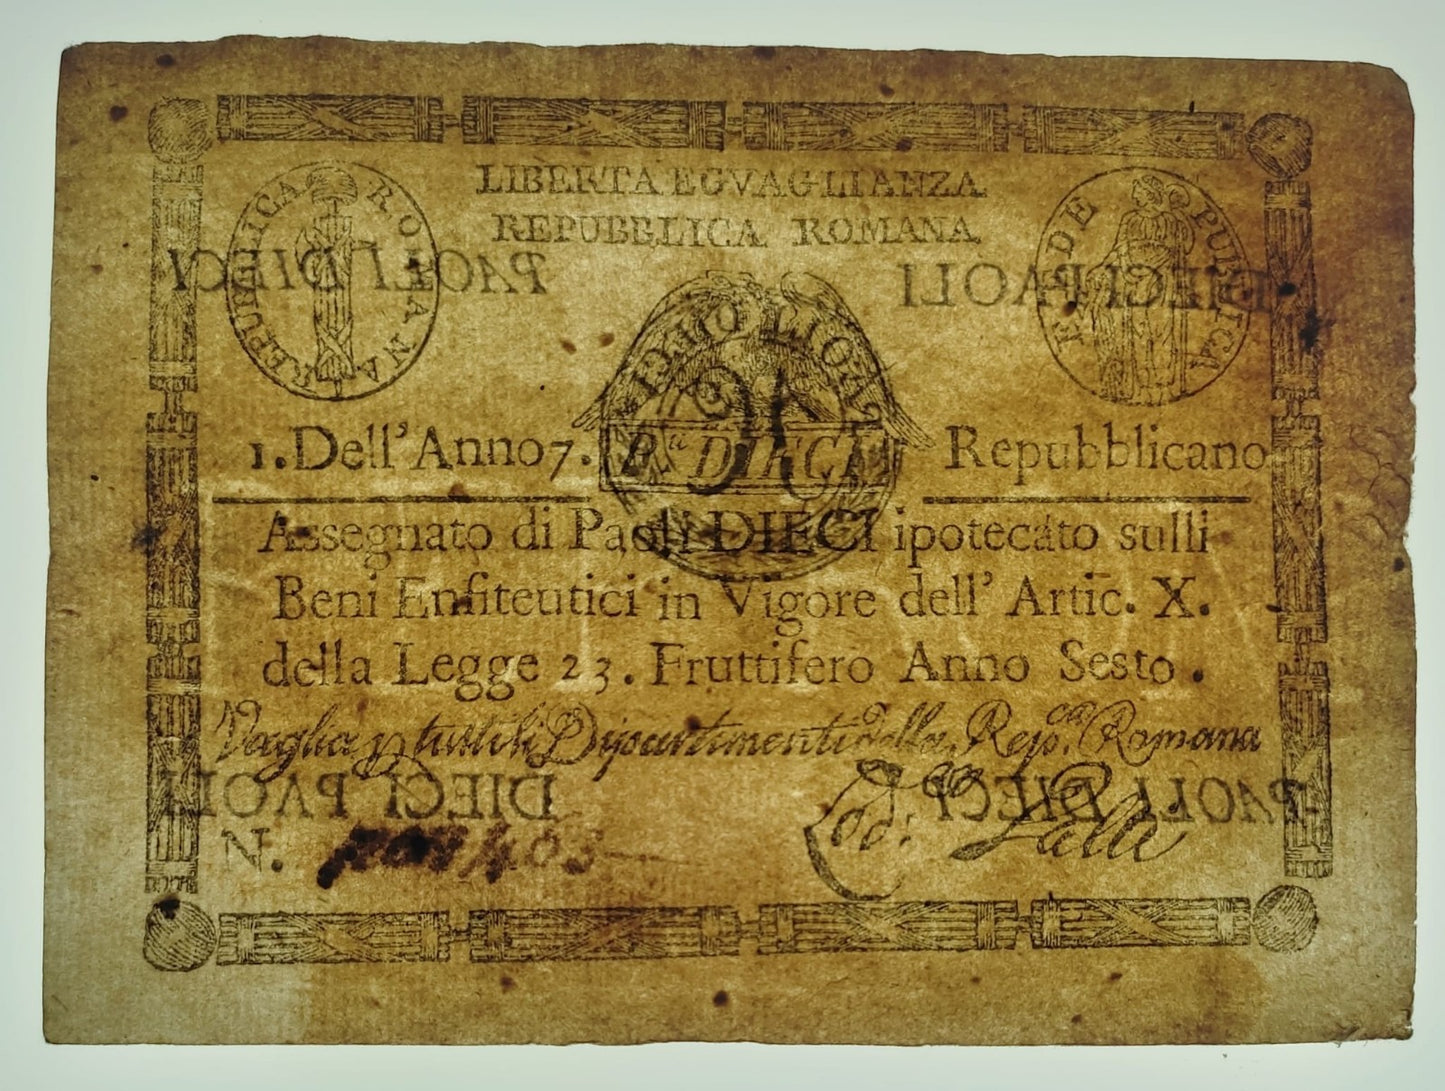 LIBERTA EGVAGLIANZA
REPUBBLICA ROMANA
REPUBBLICA ROMANA
FEDE PUBLICA
PAOLI DIECI
DIECI PAOLI
1. Dell' Anno 7.
P.ⁱ DIECI
Repubblicano
Assegnato di Paoli DIECI ipotecato sulli
Beni Enfiteutici in Vigore dell' Artic. X.
della Legge 23. Fruttifero Anno Sesto.
Vaglia p tutti li Dipartimenti della Rep.ca Romana
DIECI PAOLI
PAOLI DIECI
N.